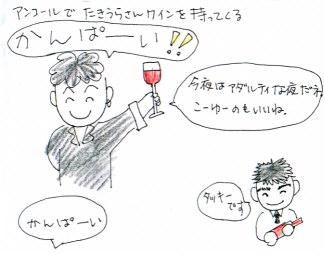 アンコールで たきうらさんワインを持ってくる
かんぱーい!!
今夜はアダルティな夜だネ
こーゆーのもいいね。
タッキー
です
かんぱーい